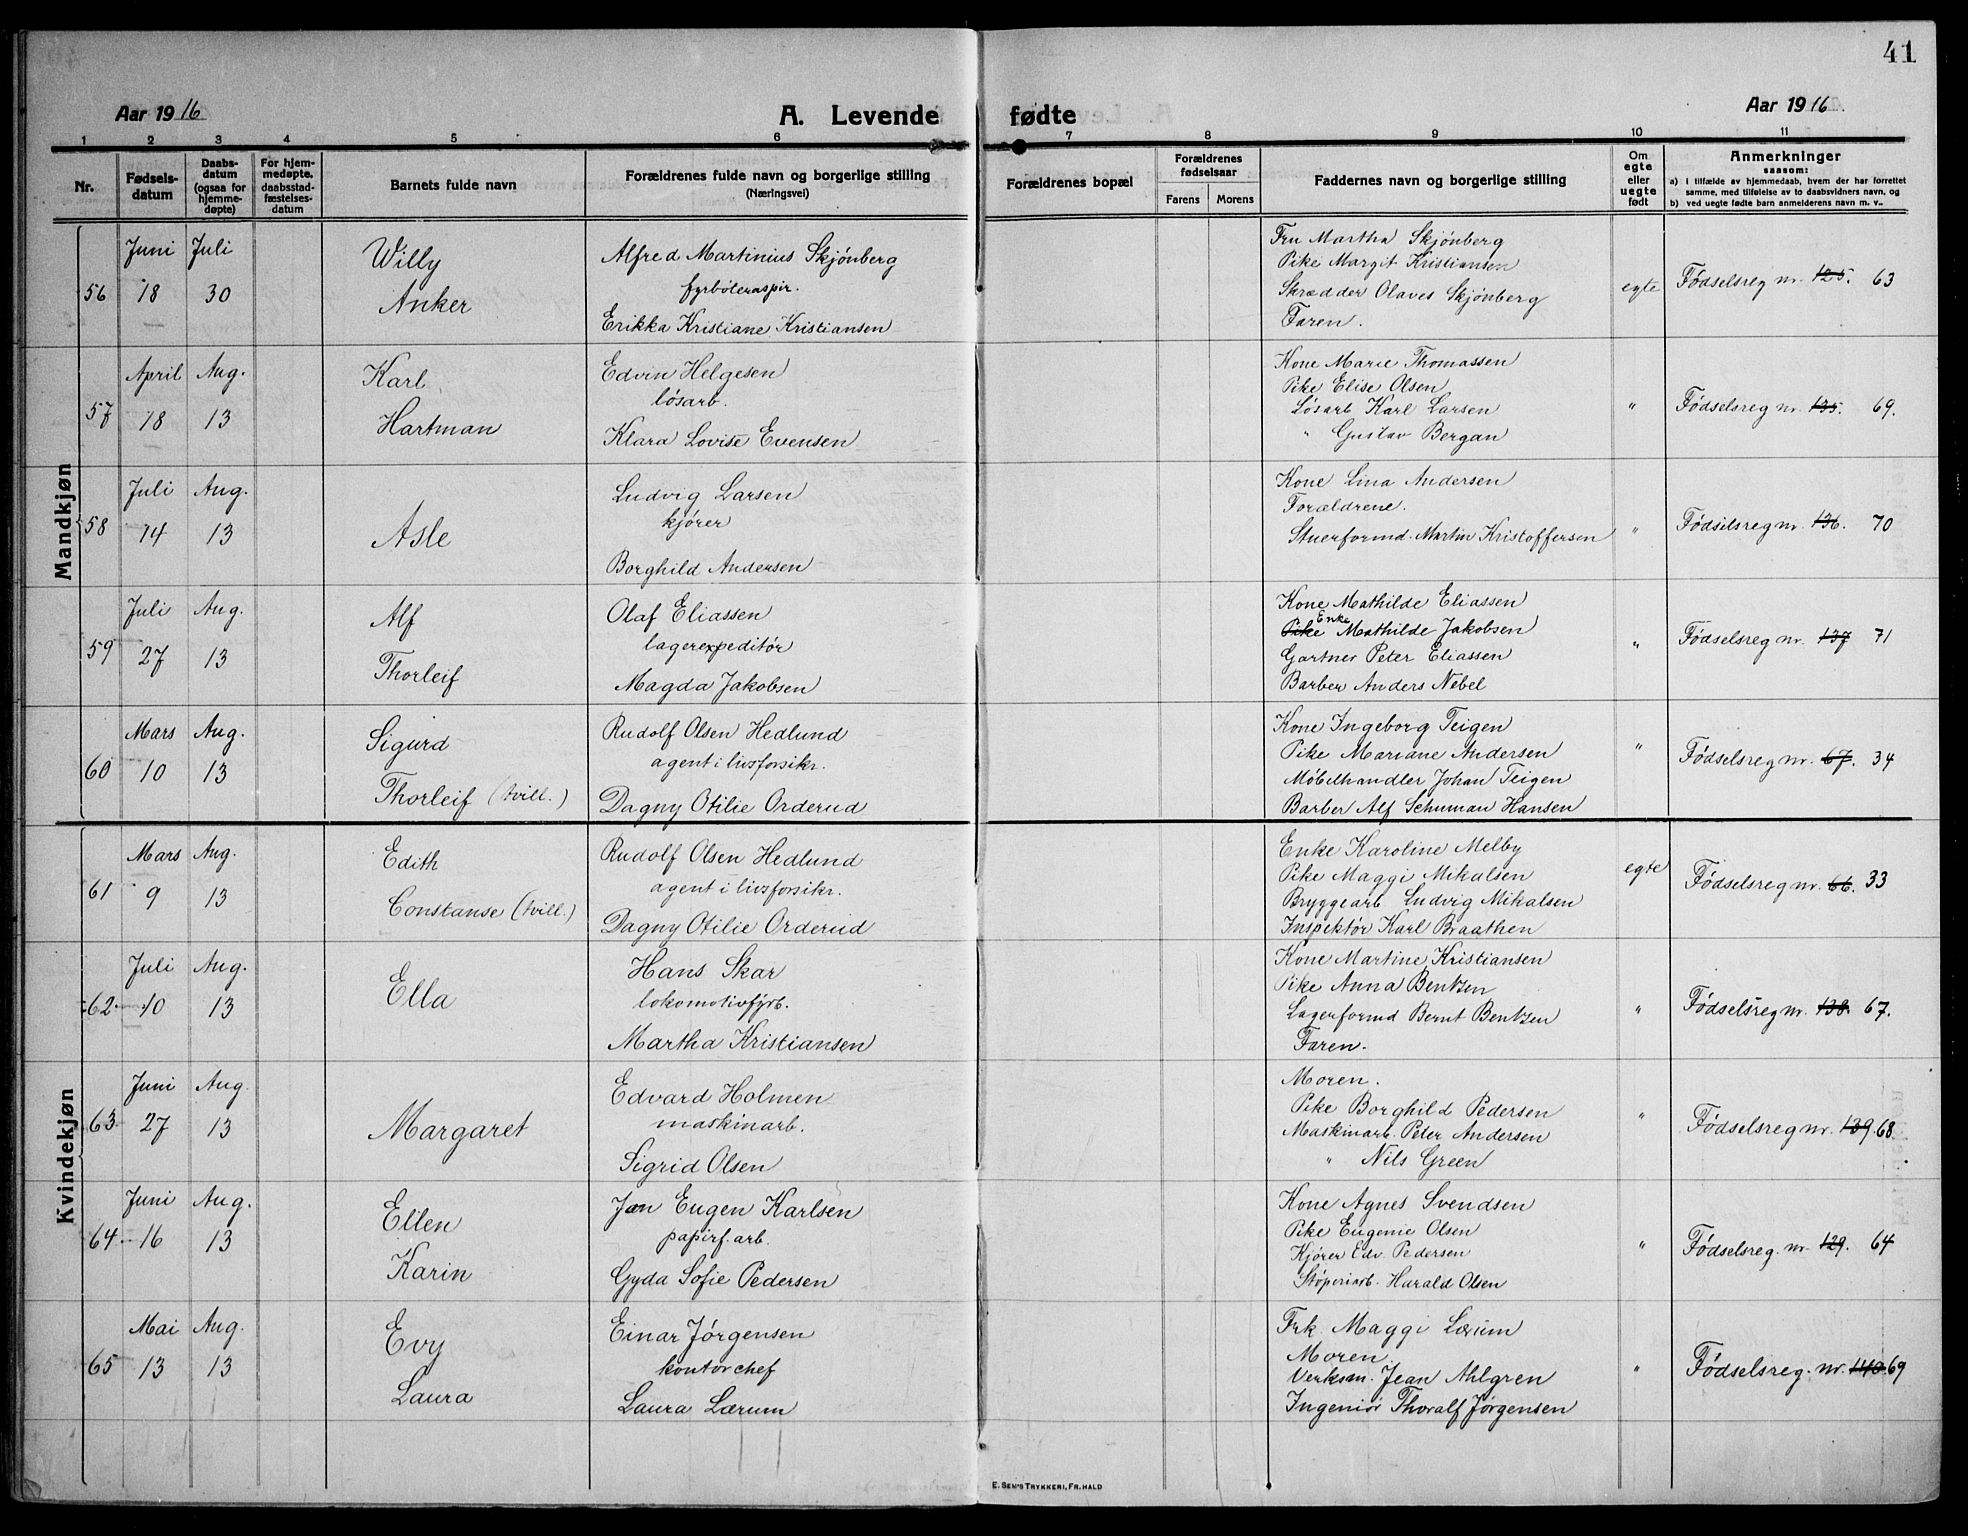 41
Aar 1916
A. Levende fødte
Aar 1916.
1 2 3 4 5 6 7 8 9 10 11
Nr.
Fødsels-
datum
Daabs-
datum
(ogsaa for
hjemme-
døpte)
For hjem-
medøpte,
daabsstad-
fæstelses-
datum
Barnets fulde navn
Forældrenes fulde navn og borgerlige stilling
(Næringsvei)
Forældrenes bopæl
Forældrenes
fødselsaar
Farens Morens
Faddernes navn og borgerlige stilling
Om
egte
eller
uegte
født
Anmerkninger
saasom:
a) I tilfælde av hjemmedaab, hvem der har forrettet
samme, med tilføielse av to daabsvidners navn, og
b) ved uegte fødte barn anmelderens navn m. v.
Mandkjøn
56
Juni
18
Juli
30
Willy
Anker
Alfred Martinius Skjønberg
fyrbøteraspir.
Erikka Kristiane Kristiansen
Fru Martha Skjønberg
Pike Margit Kristiansen
Skrædder Olaves Skjønberg
Faren.
egte
Fødselsreg nr. 125. 63
57
April
18
Aug.
13
Karl
Hartman
Edvin Helgesen
løsarb.
Klara Lovise Evensen
Kone Marie Thomassen
Pike Elise Olsen
Løsarb Karl Larsen
" Gustav Bergan
"
Fødselsreg nr. 135. 69.
58
Juli
14
Aug.
13
Asle
Ludvig Larsen
kjører
Borghild Andersen
Kone Lina Andersen
Forældrene.
Stuerformd. Martin Kristoffersen
"
Fødselsreg nr. 136. 70
59
Juli
27
Aug.
13
Alf
Thorleif
Olaf Eliassen
lagerexpeditør
Magda Jakobsen
Kone Mathilde Eliassen
Pike Enke Mathilde Jakobsen
Gartner Peter Eliassen
Barber Anders Nebel
"
Fødselsreg nr. 137 71
60
Mars
10
Aug.
13
Sigurd
Thorleif (tvill.)
Rudolf Olsen Hedlund
agent i livsforsikr.
Dagny Otilie Orderud
Kone Ingeborg Teigen
Pike Mariane Andersen
Møbelhandler Johan Teigen
Barber Alf Schuman Hansen
"
Fødselsreg nr. 67. 34
Kvindekjøn
61
Mars
9
Aug.
13
Edith
Constanse (tvill.)
Rudolf Olsen Hedlund
agent i livsforsikr.
Dagny Otilie Orderud
Enke Karoline Melby
Pike Maggi Mikalsen
Bryggearb Ludvig Mikalsen
Inspektør Karl Braathen
egte
Fødselsreg nr. 66. 33
62
Juli
10
Aug.
13
Ella
Hans Skar
lokomotivfyrb.
Martha Kristiansen
Kone Martine Kristiansen
Pike Anna Bentzen
Lagerformd Bernt Bentzen
Faren.
"
Fødselsreg nr. 138. 67.
63
Juni
27
Aug.
13
Margaret
Edvard Holmen
maskinarb.
Sigrid Olsen
Moren.
Pike Borghild Pedersen
Maskinarb. Peter Andersen
" Nils Green
"
Fødselsreg nr. 139. 68
64
Juni
16
Aug.
13
Ellen
Karin
Jan Eugen Karlsen
papirf.arb.
Gyda Sofie Pedersen
Kone Agnes Svendsen
Pike Eugenie Olsen
Kjører Edv. Pedersen
Støperiarb. Harald Olsen
"
Fødselsreg. nr. 129. 64
65
Mai
13
Aug.
13
Evy
Laura
Einar Jørgensen
kontorchef
Laura Lærum
Frk. Maggi Lærum
Moren.
Verksm. Jean Ahlgren
Ingeniør Thoralf Jørgensen
"
Fødselsreg. nr. 140. 69
E. Sem's Trykkeri, Fr.hald